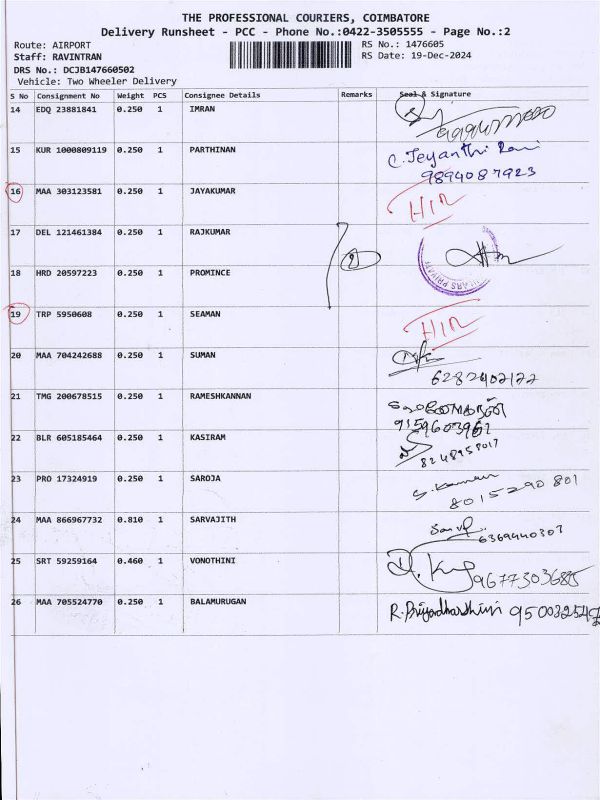 THE PROFESSIONAL COURIERS, COIMBATORE
Delivery Runsheet - PCC - Phone No.:0422-3505555 - Page No.:2
Route: AIRPORT
RS No.: 1476605
Staff: RAVINTRAN
RS Date: 19-Dec-2024
DRS No.: DCJB147660502
Vehicle: Two Wheeler Delivery
S No Consignment No Weight PCS Consignee Details Remarks Seal & Signature
14 EDQ 23881841 0.250 1 IMRAN
15 KUR 1000809119 0.250 1 PARTHINAN C. Jeyanthi Rani
9894087923
16 MAA 303123581 0.250 1 JAYAKUMAR HIR
17 DEL 121461384 0.250 1 RAJKUMAR
2
18 HRD 20597223 0.250 1 PROMINCE
19 TRP 5950608 0.250 1 SEAMAN HIR
20 MAA 704242688 0.250 1 SUMAN
6282402122
21 TMG 200678515 0.250 1 RAMESHKANNAN
9159603961
22 BLR 605185464 0.250 1 KASIRAM
8248958017
23 PRO 17324919 0.250 1 SAROJA S. Kannan
8015290801
24 MAA 866967732 0.810 1 SARVAJITH
6369440303
25 SRT 59259164 0.460 1 VONOTHINI
26 MAA 705524770 0.250 1 BALAMURUGAN R. Priyadharshini